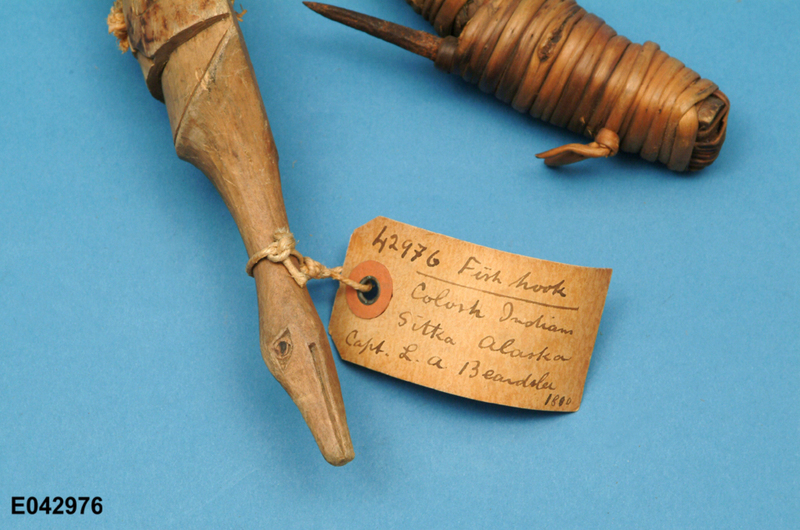 42976 Fish hook
Colosh Indians
Sitka Alaska
Capt. L. A. Beardslee
E042976